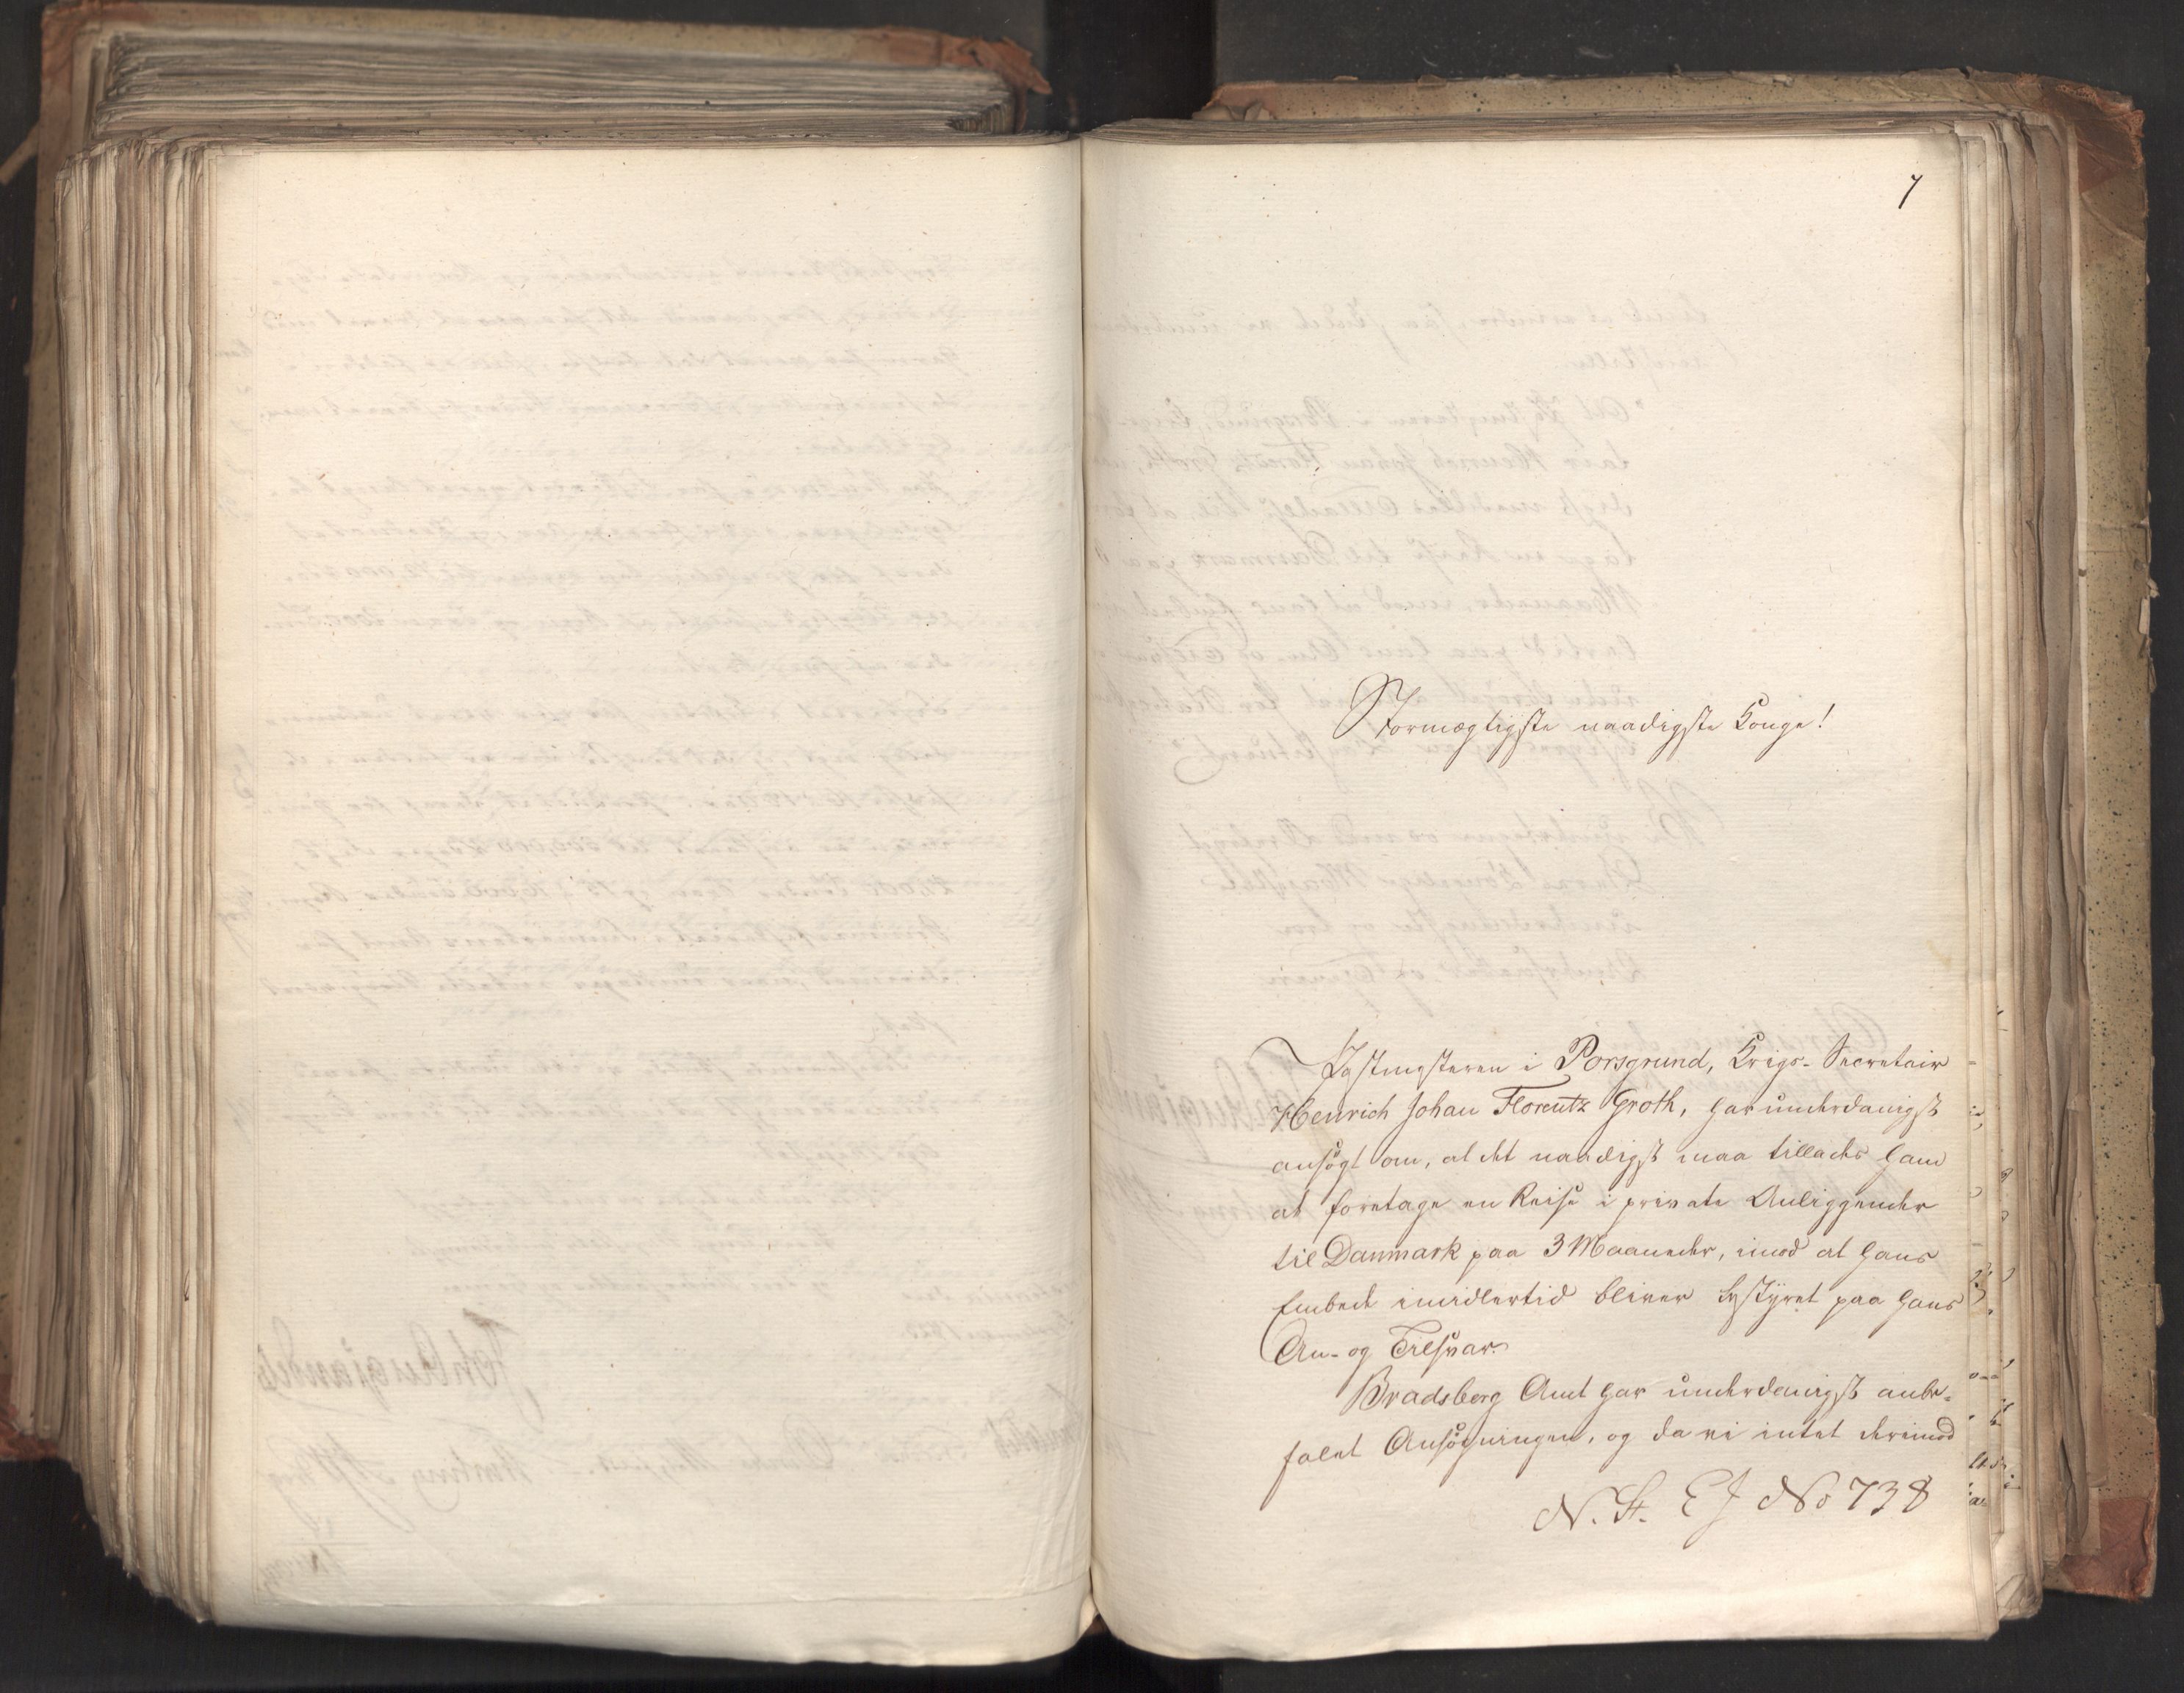 7
Stormægtigste naadigste Konge!
Postmesteren i Porsgrund, Krigs-Secretair
Henrich Johan Florentz Groth, har underdanigst
ansøgt om, at det naadigst maa tillades ham
at foretage en Reise i private Anliggender
til Danmark paa 3 Maaneder, imod at hans
Embede imidlertid bliver bestyret paa hans
An- og Tilsvar.
Bradsberg Amt har underdanigst anbe-
falet Ansøgningen, og da vi intet derimod
N. St. E J No 738